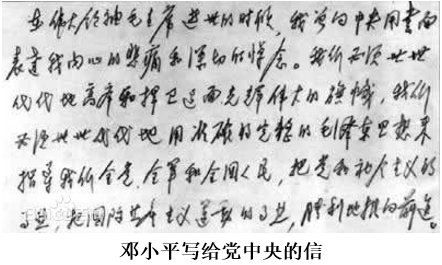 在伟大领袖毛主席逝世的时候，我曾向中央用书面
表达我内心的悲痛和深切的悼念。我们必须世世
代代地高举和捍卫这面光辉伟大的旗帜，我们
必须世世代代地用准确的完整的毛泽东思想来
指导我们全党、全军和全国人民，把党和社会主义的
事业，把国际共产主义运动的事业，胜利地推向前进。
邓小平写给党中央的信